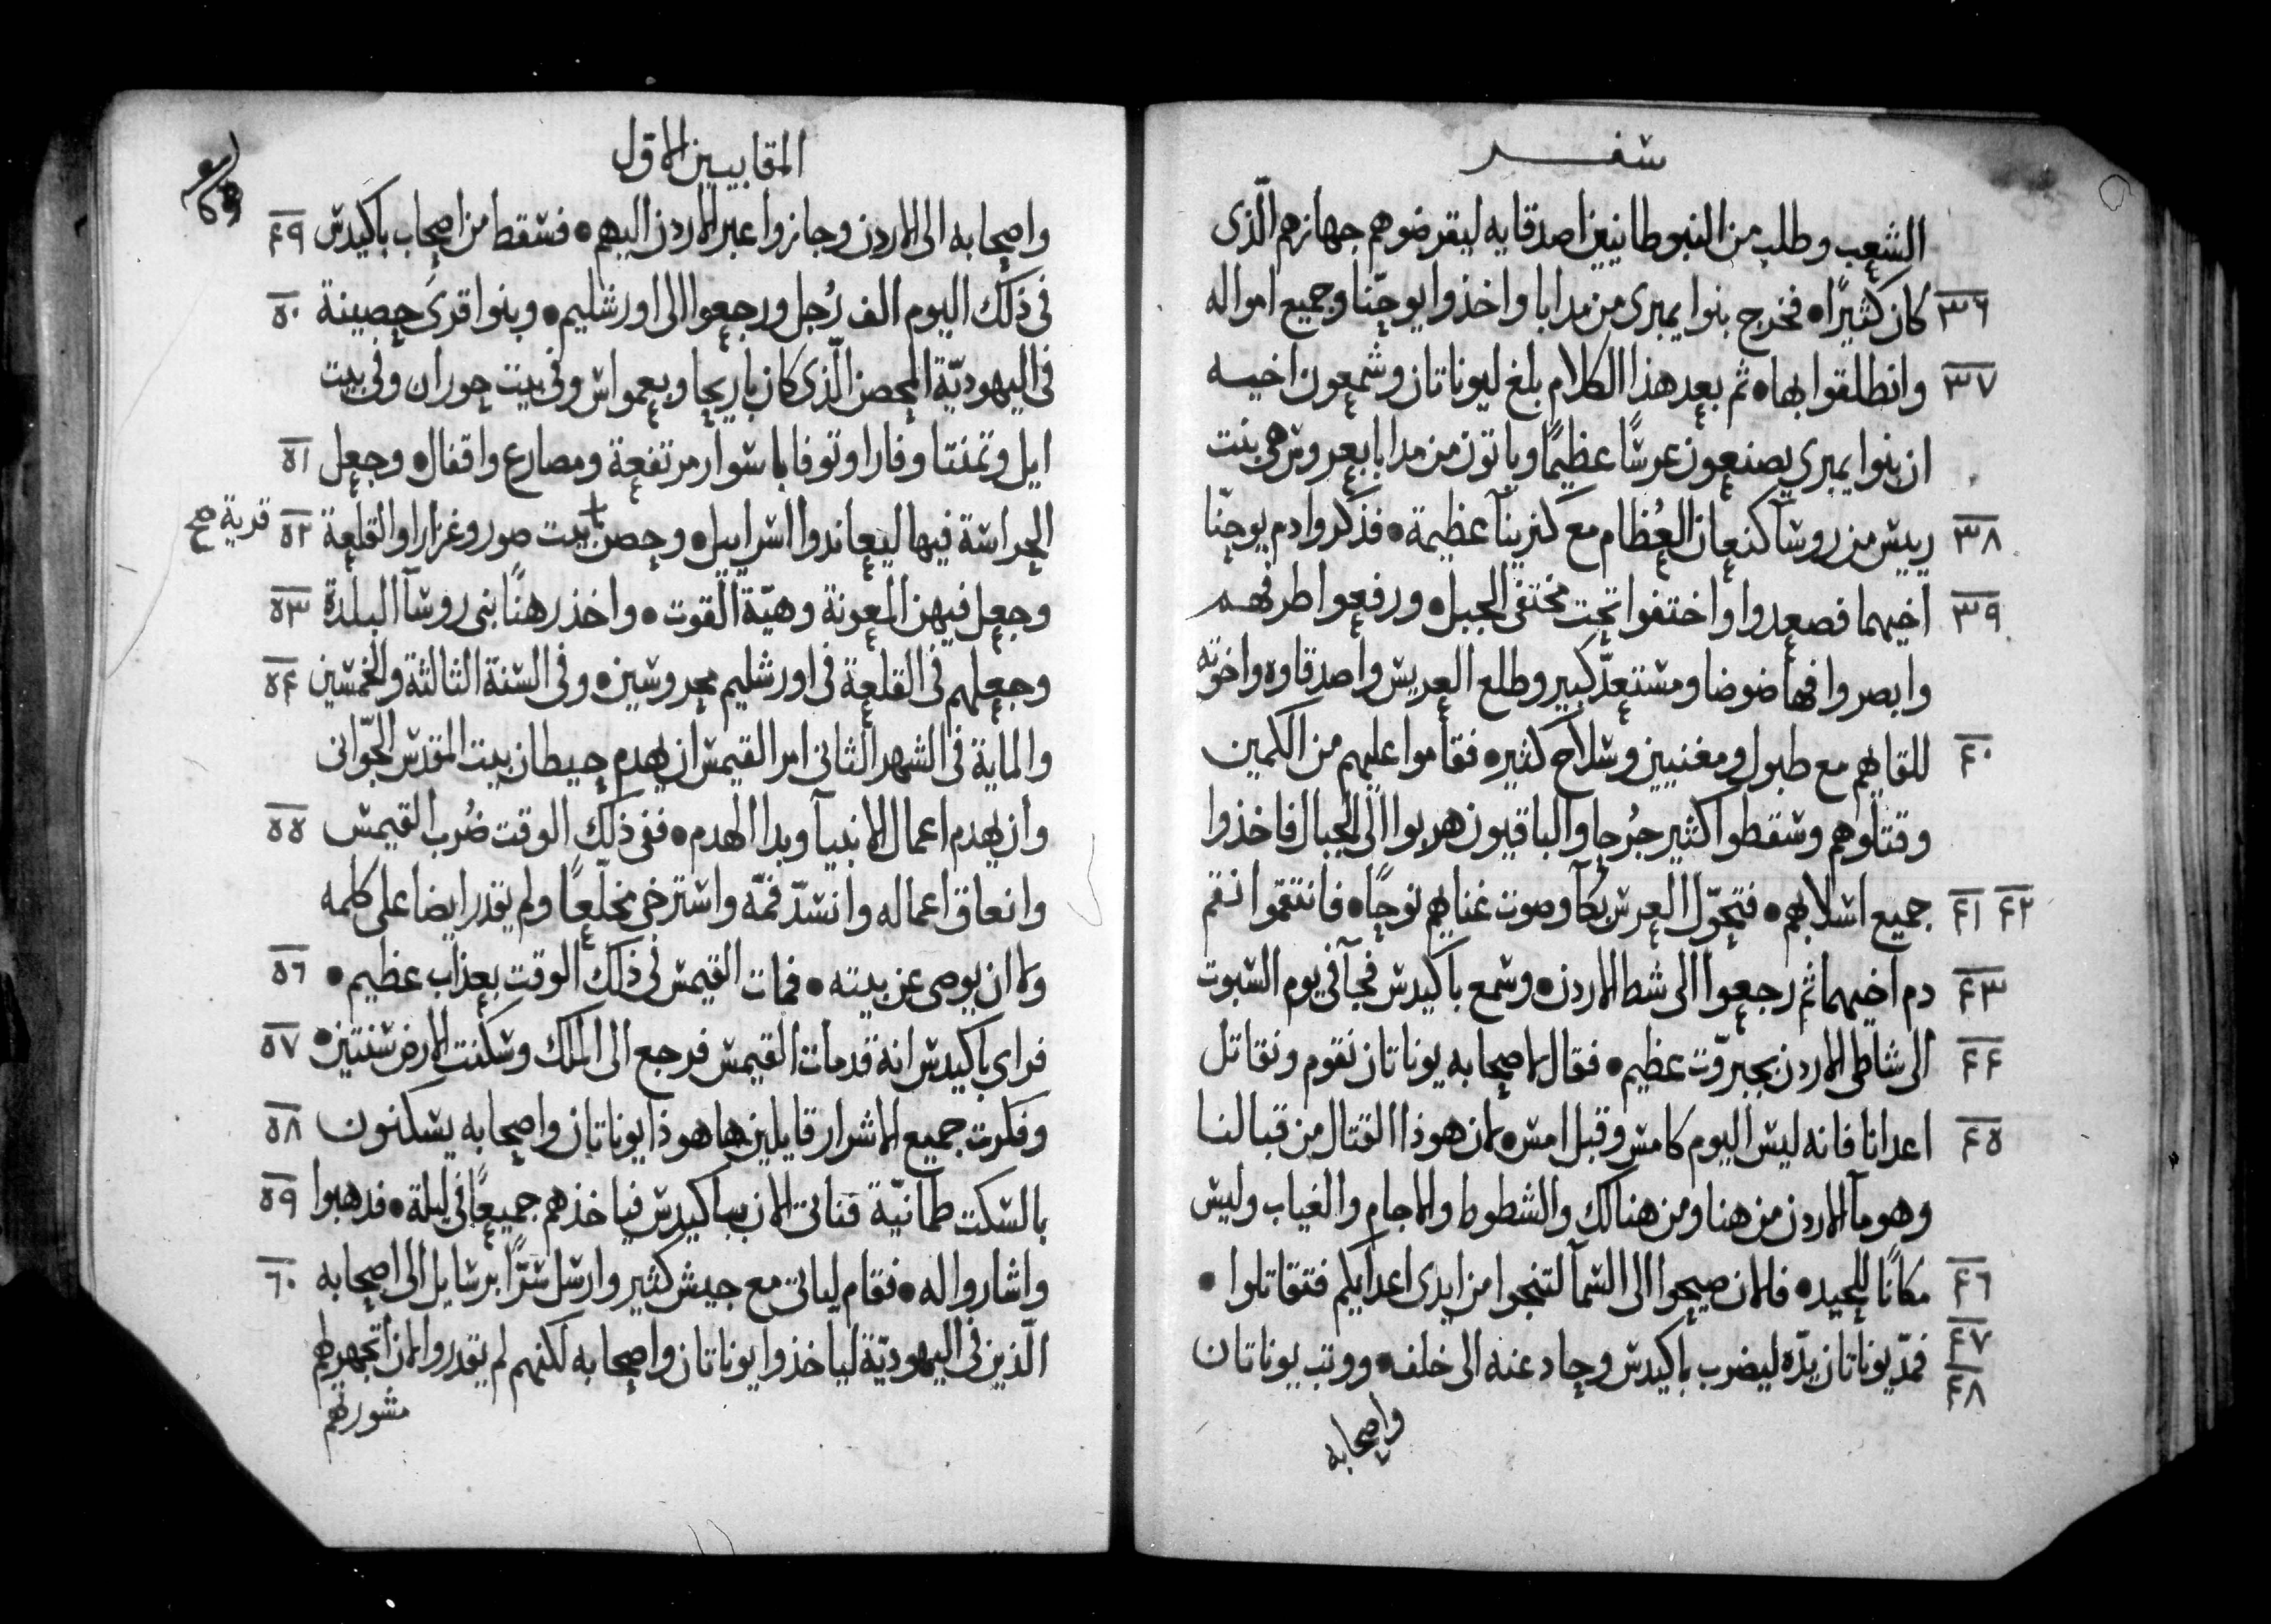 سفر
الشعب وطلب من النبوطانيين اصدقايه ليقرضوهم جهازهم الّذى
٣٦ كان كثيرًا • فخرج بنوا يمبرى من مدابا واخذوا يوحنّا وجميع امواله
٣٧ وانطلقوا بها • ثم بعد هذا الكلام بلغ ليوناتان وشمعون اخيه
ان بنوا يمبرى يصنعون عرسًا عظيمًا وياتون من مدابا بعروس هى بنت
٣٨ رييس من روسآ كنعان العُظام مع كنريتآ عظيمة • فذكروا دم يوحنّا
٣٩ اخيهما فصعدوا واختفوا تحت مختفى الجبل • ورفعوا طرفهم
وابصروا فهاضوضا ومستعدّ كبير وطلع العريس واصدقاوه واخوته
٤٠ للقايهم مع طبول ومغنيين وسلاح كثير • فقاموا عليهم من الكمين
وقتلوهم وسقطوا كثير جُرحا والباقيون هربوا الى الجبال فاخذوا
٤١ ٤٢ جميع اسلابهم • فتحوّل العرس بكآ وصوت غناهم نوحًا • فانتقموا نقم
٤٣ دم اخيهما ثم رجعوا الى شط الاردن • وسمع باكيدس فجآ فى يوم السبوت
٤٤ الى شاطى الاردن بجبروّت عظيم • فقال لاصحابه يوناتان نقوم ونقاتل
٤٥ اعدانا فانه ليس اليوم كامس وقبل امس • لان هوذا القتال من قبالنا
وهو مآ الاردن من هنا ومن هنالك والشطوط والاجام والغياب وليس
٤٦ مكانًا للحيد • فالان صيحوا الى السمآ لتنجوا من ايدى اعدايكم فتقاتلوا •
٤٧ ٤٨ فمدّ يوناتان يدّه ليضرب باكيدس وحاد عنه الى خلف • ووتب يوناتان
واصحابه
المقابيين الاوّل
واصحابه الى الاردن وجازوا عبر الاردن اليهم • فسقط من اصحاب باكيدس ٤٩
فى ذلك اليوم الف رُجل ورجعوا الى اورشليم • وبنوا قرىً حصينة ٥٠
فى اليهوديّة المحصن الّذى كان باريحا وبعمواس وفى بيت حوران وفى بيت
ايل وتمنتا وفارا وتوفا باسوار مرتفعة ومصارع واقفال • وجعل ٥١
الحراسة فيها ليعاندوا اسراييل • وحصن بيت صور وغزارا والقلعة ٥٢ قرية صح
وجعل فيهن المعونة وهيّة القوت • واخذ رهنًا بنى روسآ البلدة ٥٣
وجعلهم فى القلعة فى اورشليم محروسين • وفى السنة الثالثة والخمسين ٥٤
والماية فى الشهر الثانى امر القيمس ان يهدم حيطان بيت المقدس الجّوانى
وان يهدم اعمال الانبيآ وبدا الهدم • ففى ذلك الوقت ضُرب القيمس ٥٥
وانعاق اعماله وانسدّ فمّه واسترخى مخلّعًا ولم يقدر ايضا على كلمه
ولا ان يوصى عن بيته • فمات القيمس فى ذلك الوقت بعذاب عظيم • ٥٦
فراى باكيدس انه قد مات القيمس فرجع الى الملك وسكنت الارض سنتين • ٥٧
وفكرت جميع الاشرار قايلين ها هوذا يوناتان واصحابه يسكنون ٥٨
بالسكت طمانيّة فناتى الان بباكيدس فياخذهم جميعًا فى ليلة • فدهبوا ٥٩
واشاروا له • فقام لياتى مع جيش كثير وارسل سرًّا برسايل الى اصحابه ٦٠
الّذين فى اليهوديّة لياخذوا يوناتان واصحابه لكنهم لم يقدروا لان اتجهر لهم
مشورتهم